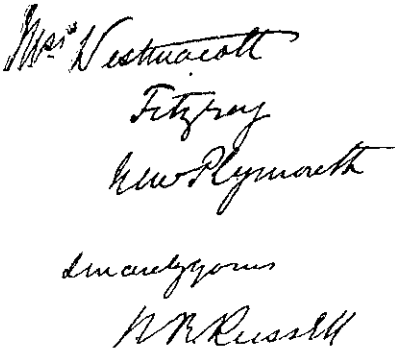 Mrs. Westmacott
Fitzroy
New Plymouth
Sincerely yours
Russell